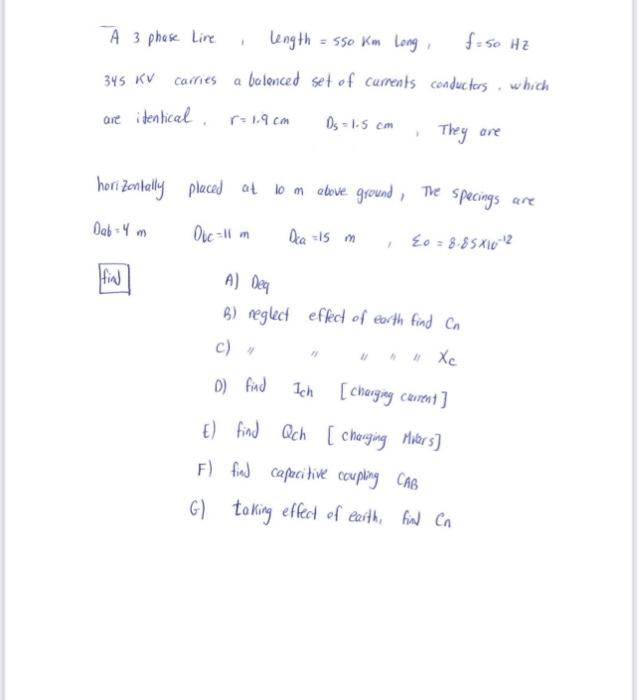 A 3 phase Line, Length = 550 Km Long, f = 50 HZ
345 KV carries a balanced set of currents conductors, which
are identical, r = 1.9 cm Ds = 1.5 cm, They are
horizontally placed at 10 m above ground, The spacings are
Dab = 4 m Dbc = 11 m Dca = 15 m, εo = 8.85 x 10⁻¹²
find A) Deq
B) neglect effect of earth find Cn
C) " " " " " Xc
D) find Ich [charging current]
E) find Qch [charging Mvars]
F) find capacitive coupling CAB
G) taking effect of earth, find Cn